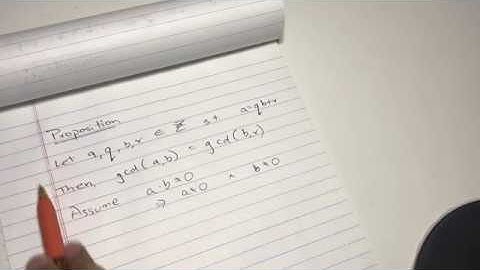 Proposition
Let a, q, b, r ∈ ℤ s.t a=qb+r
Then, gcd(a,b) = gcd(b,r)
Assume a·b≠0
⇒ a≠0 ^ b≠0